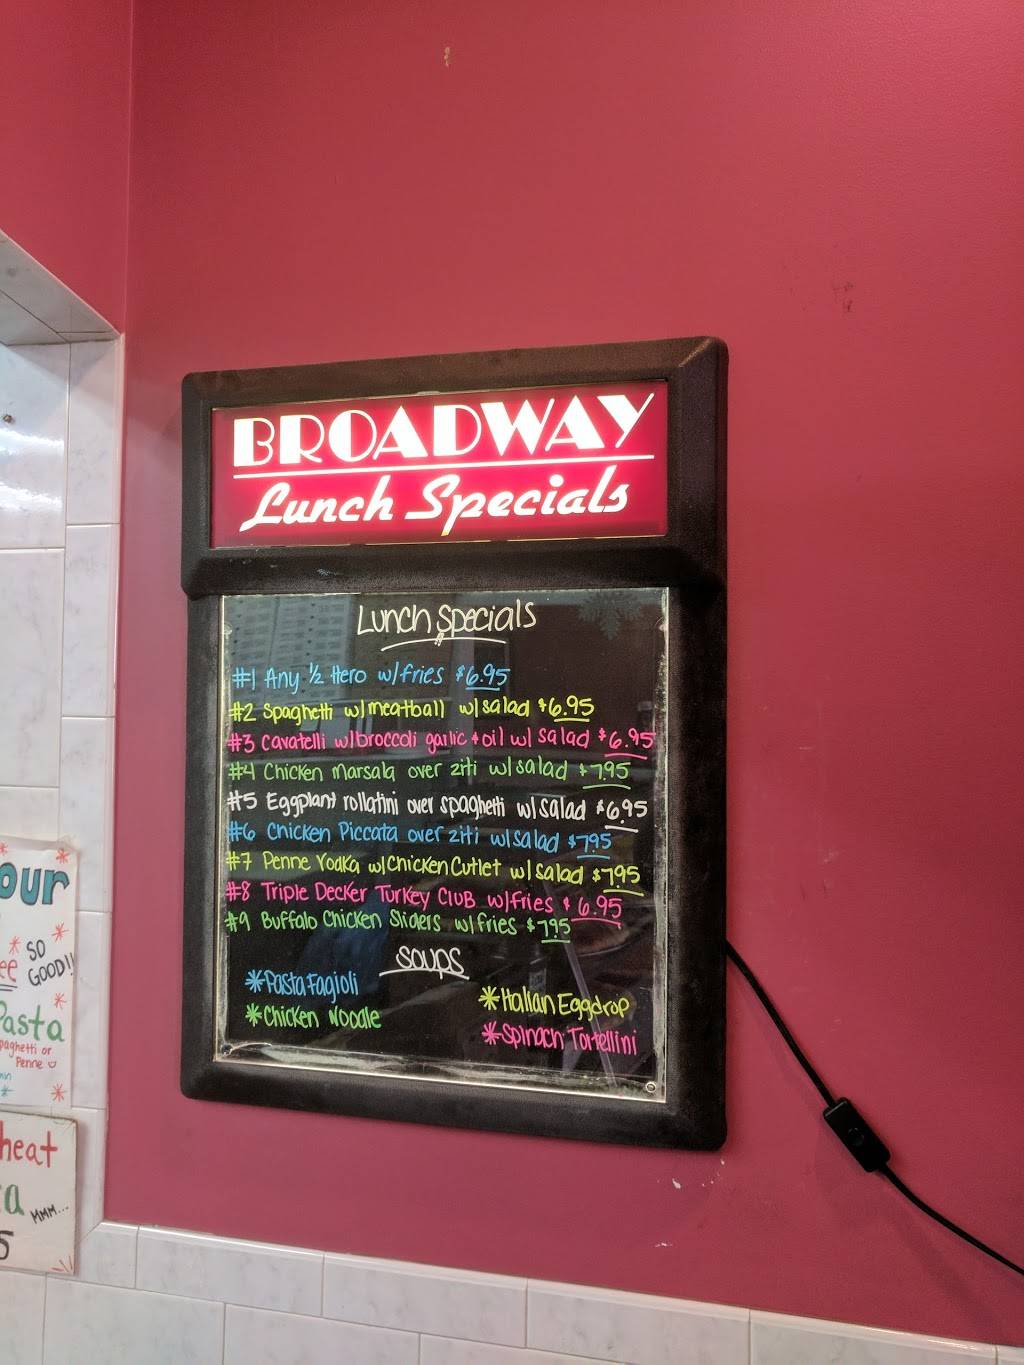 BROADWAY
Lunch Specials
Lunch Specials
#1 Any ½ Hero w/fries $6.95
#2 Spaghetti w/meatball w/salad $6.95
#3 Cavatelli w/broccoli garlic + oil w/ salad $6.95
#4 Chicken Marsala over ziti w/salad $7.95
#5 Eggplant rollatini over spaghetti w/salad $6.95
#6 Chicken Piccata over ziti w/salad $7.95
#7 Penne Vodka w/Chicken Cutlet w/salad $7.95
#8 Triple Decker Turkey Club w/fries $6.95
#9 Buffalo Chicken Sliders w/fries $7.95
Soups
*Pasta Fagioli
*Italian Eggdrop
*Chicken Noodle
*Spinach Tortellini
our
SO
GOOD!!
ee
Pasta
paghetti or
Penne
heat
a
MMM...
5